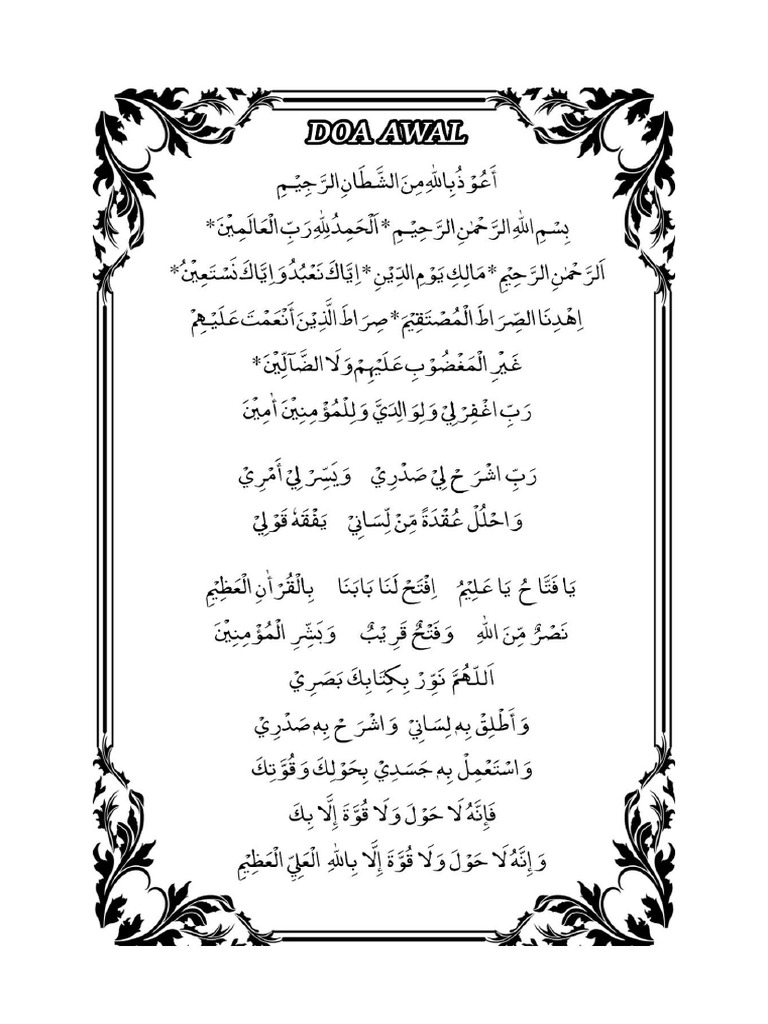 DOA AWAL
أَعُوْذُبِاللهِ مِنَ الشَّطَانِ الرَّجِيْمِ
بِسْمِ اللهِ الرَّحْمٰنِ الرَّحِيْمِ * اَلْحَمِدُلِلهِ رَبِّ الْعَالَمِيْنَ *
اَلرَّحْمٰنِ الرَّحِيْمِ * مَالِكِ يَوْمِ الدِّيْنِ * اِيَّاكَ نَعْبُدُ وَاِيَّاكَ نَسْتَعِيْنُ *
اِهْدِنَا الصِّرَاطَ الْمُصْتَقِيْمَ * صِرَاطَ الَّذِيْنَ أَنْعَمْتَ عَلَيْهِمْ
غَيْرِ الْمَغْضُوْبِ عَلَيْهِمْ وَلَا الضَّآلِّيْنَ *
رَبِّ اغْفِرْ لِيْ وَلِوَالِدَيَّ وَلِلْمُؤْمِنِيْنَ أٰمِيْنَ
رَبِّ اشْرَحْ لِيْ صَدْرِيْ وَيَسِّرْ لِيْ أَمْرِيْ
وَاحْلُلْ عُقْدَةً مِّنْ لِّسَانِيْ يَفْقَهُ قَوْلِيْ
يَا فَتَّاحُ يَا عَلِيْمُ اِفْتَحْ لَنَا بَابَنَا بِالْقُرْاٰنِ الْعَظِيْمِ
نَصْرٌ مِّنَ اللهِ وَفَتْحٌ قَرِيْبٌ وَبَشِّرِ الْمُؤْمِنِيْنَ
اَللّٰهُمَّ نَوِّرْ بِكِتَابِكَ بَصَرِيْ
وَأَطْلِقْ بِهِ لِسَانِيْ وَاشْرَحْ بِهِ صَدْرِيْ
وَاسْتَعْمِلْ بِهِ جَسَدِيْ بِحَوْلِكَ وَقُوَّتِكَ
فَإِنَّهُ لَا حَوْلَ وَلَا قُوَّةَ إِلَّا بِكَ
وَإِنَّهُ لَا حَوْلَ وَلَا قُوَّةَ إِلَّا بِاللهِ الْعَلِيِّ الْعَظِيْمِ